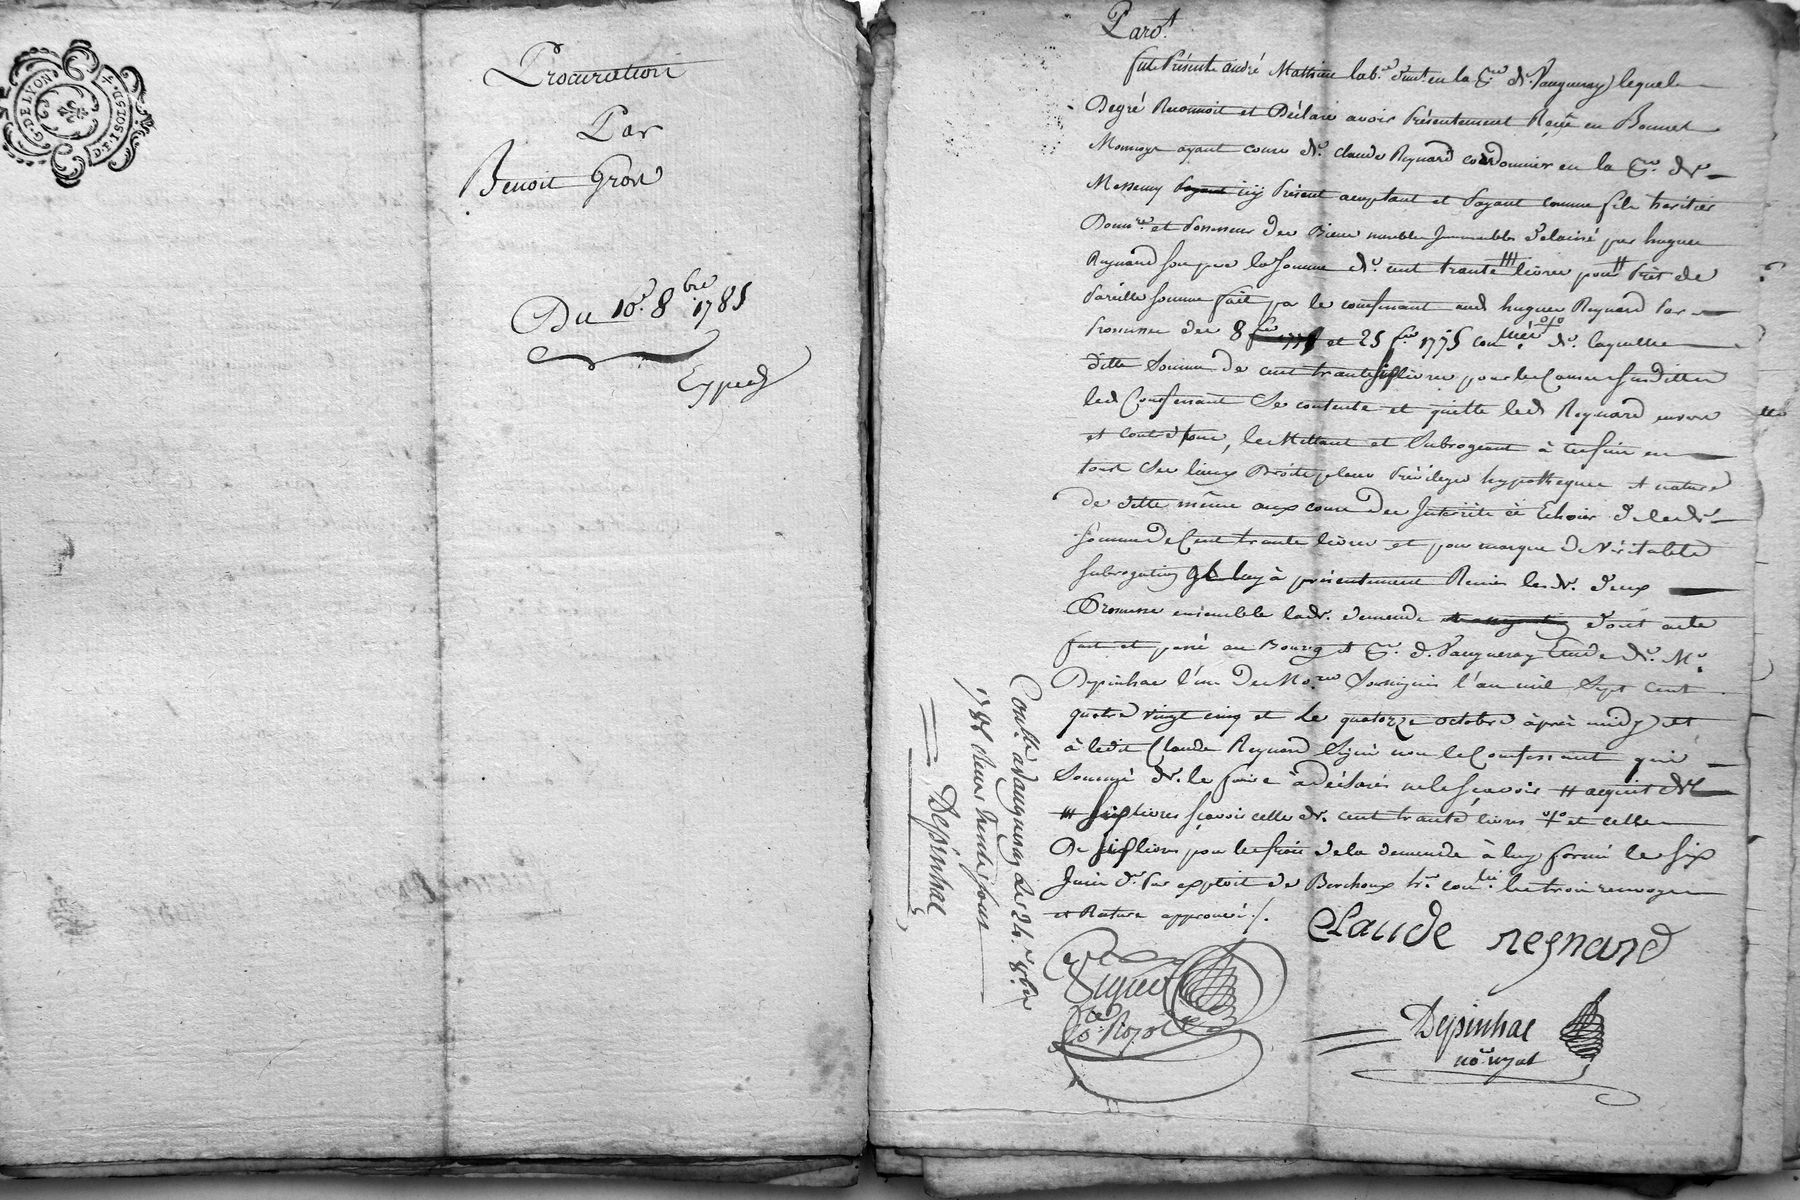 G. DE LYON
D.P. 1 SOL 8 D.
Procuration
Par
Benoit Gros
Du 10e 8bre 1785
Expedᵉ
Par ̃d
fut Présent andré Mathieu lab.r demt en la p.sse de Vaugneray lequel
Degré Reconnoit et Déclare avoir Présentement Reçû en Bonnet
Monnoye ayant cours de claude Reynard cordonnier en la p.sse de
Messemy icy Présent acceptant et Payant comme fils heritier
et Possesseur des Biens meubles Immeubles délaissé par hugues
Reynard son pere la somme de cent trante /// livres pour // Prêt de
Pareille somme fait par le confessant aud hugues Reynard Par
Promesse des 8 et 25 1775 de laquelle
ditte Somme de cent trante six livres pour les Causes susdittes
led Confessant Se contente et quitte led Reynard envers
et contre tous, le Mettant et Subrogeant à cesfins en
tous Ses lieux Droits places Priviléges hypotheques et nature
de dette même aux cours des Intérêts à Echoir de lad.
somme de Cent trante livres et pour marque de Véritable
subrogation Il luy à présentement Remis lesd. deux
Promesse ensemble lad. demande dont acte
fait et passé au Bourg et p.sse de Vaugneray Etude de M.e
Depinhac l'un des No.res Soussignés l'an mil Sept Cent
quatre vingt cinq et Le quatorze octobre après midy et
à ledit Claude Reynard Signé non le Confessant qui
Sommé de le faire à déclaré ne le sçavoir // acquit de
/// Six livres sçavoir celle de cent trante livres et celle
De six livres pour les frais de la demande à luy formé le six
Juin d.r Par exploit de Berchoux h.r les trois renvoyes
et Rature approuvé ./.
Claude regnard
No.re Royal
Depinhac
no.re royal
Con.llé à Vaugneray Le 24.e 8bre
1785
Depinhac